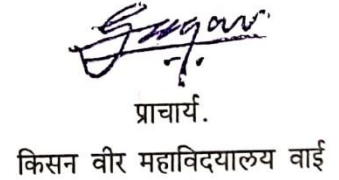 प्राचार्य.
किसन वीर महाविदयालय वाई